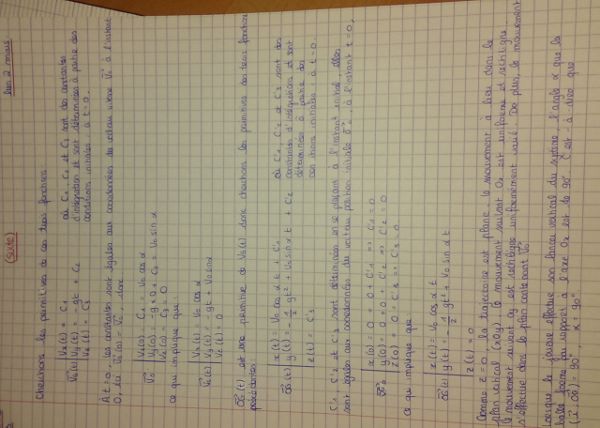 (suite)
Cherchons les primitives de ces trois fonctions
Vx(t) = C1
Vy(t) = -gt + C2
Vz(t) = C3
où C1, C2 et C3 sont des constantes
d'intégration et sont déterminées à partir des
conditions initiales à t=0.
À t=0, les constantes sont égales aux coordonnées du vecteur vitesse V0 à l'instant
0, soit
Vx(0) = C1 = V0 cos α
Vz(0) = C3 = 0
ce qui implique que :
Vx(t) = V0 cos α
Vy(t) = -gt + V0 sin α
Vz(t) = 0
OG(t) est une primitive de VG(t) donc cherchons les primitives des trois fonctions
précédentes.
x(t) = V0 cos α t + C'1
y(t) = -1/2 gt² + V0 sin α t + C'2
z(t) = C'3
où C'1, C'2 et C'3 sont des
constantes d'intégration et sont
déterminées à partir des
conditions initiales à t=0.
C'1, C'2 et C'3 sont déterminées en se plaçant à l'instant initial, elles
sont égales aux coordonnées du vecteur position initiale à l'instant t=0.
x(0) = 0 + C'1 => C'1 = 0
y(0) = 0 + 0 + C'2 => C'2 = 0
z(0) = 0 + C'3 => C'3 = 0
ce qui implique que :
OG(t)
x(t) = V0 cos α t
y(t) = -1/2 gt² + V0 sin α t
z(t) = 0
Comme z=0, la trajectoire est plane - le mouvement a lieu dans le
plan vertical (xOy). le mouvement suivant Ox est uniforme et rectiligne
le mouvement suivant Oy est rectiligne uniformément varié. De plus, le mouvement
s'effectue dans le plan contenant V0
Lorsque le joueur effectue son lancer vertical du système, l'angle α que la
balle forme par rapport à l'axe Ox est de 90°. C'est-à-dire que
= 90°, α = 90°.